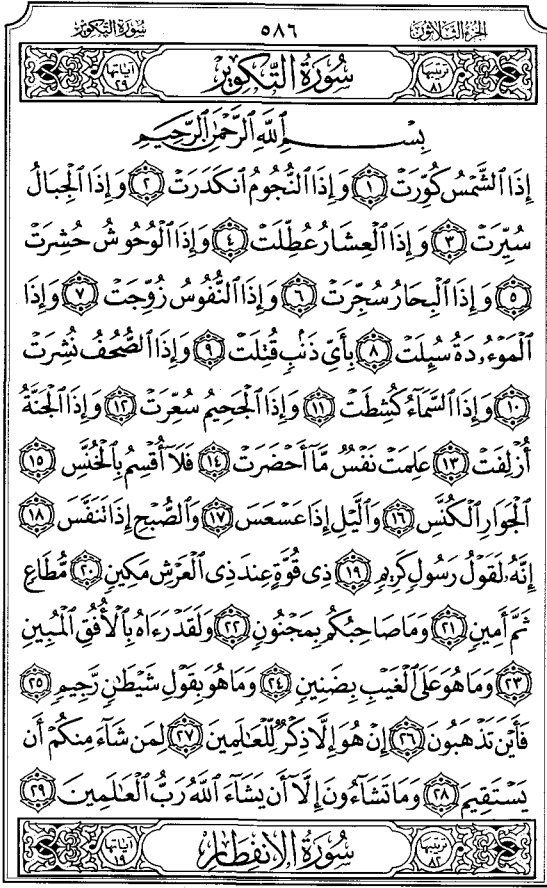 سُورَةُ التَّكْوِيرِ ٥٨٦ الجزء الثلاثون
آيَاتُهَا ٢٩ سُورَةُ التَّكْوِيرِ تَرْتِيبُهَا ٨١
بِسْمِ اللَّهِ الرَّحْمَٰنِ الرَّحِيمِ
إِذَا الشَّمْسُ كُوِّرَتْ ١ وَإِذَا النُّجُومُ انكَدَرَتْ ٢ وَإِذَا الْجِبَالُ
سُيِّرَتْ ٣ وَإِذَا الْعِشَارُ عُطِّلَتْ ٤ وَإِذَا الْوُحُوشُ حُشِرَتْ
٥ وَإِذَا الْبِحَارُ سُجِّرَتْ ٦ وَإِذَا النُّفُوسُ زُوِّجَتْ ٧ وَإِذَا
الْمَوْءُۥدَةُ سُئِلَتْ ٨ بِأَيِّ ذَنۢبٍ قُتِلَتْ ٩ وَإِذَا الصُّحُفُ نُشِرَتْ
١٠ وَإِذَا السَّمَآءُ كُشِطَتْ ١١ وَإِذَا الْجَحِيمُ سُعِّرَتْ ١٢ وَإِذَا الْجَنَّةُ
أُزْلِفَتْ ١٣ عَلِمَتْ نَفْسٌ مَّآ أَحْضَرَتْ ١٤ فَلَآ أُقْسِمُ بِالْخُنَّسِ ١٥
الْجَوَارِ الْكُنَّسِ ١٦ وَالَّيْلِ إِذَا عَسْعَسَ ١٧ وَالصُّبْحِ إِذَا تَنَفَّسَ ١٨
إِنَّهُۥ لَقَوْلُ رَسُولٍ كَرِيمٍ ١٩ ذِى قُوَّةٍ عِندَ ذِى الْعَرْشِ مَكِينٍ ٢٠ مُّطَاعٍ
ثَمَّ أَمِينٍ ٢١ وَمَا صَاحِبُكُم بِمَجْنُونٍ ٢٢ وَلَقَدْ رَءَاهُ بِالْأُفُقِ الْمُبِينِ
٢٣ وَمَا هُوَ عَلَى الْغَيْبِ بِضَنِينٍ ٢٤ وَمَا هُوَ بِقَوْلِ شَيْطَٰنٍ رَّجِيمٍ ٢٥
فَأَيْنَ تَذْهَبُونَ ٢٦ إِنْ هُوَ إِلَّا ذِكْرٌ لِّلْعَالَمِينَ ٢٧ لِمَن شَآءَ مِنكُمْ أَن
يَسْتَقِيمَ ٢٨ وَمَا تَشَآءُونَ إِلَّآ أَن يَشَآءَ اللَّهُ رَبُّ الْعَالَمِينَ ٢٩
آيَاتُهَا ١٩ سُورَةُ الِانفِطَارِ تَرْتِيبُهَا ٨٢